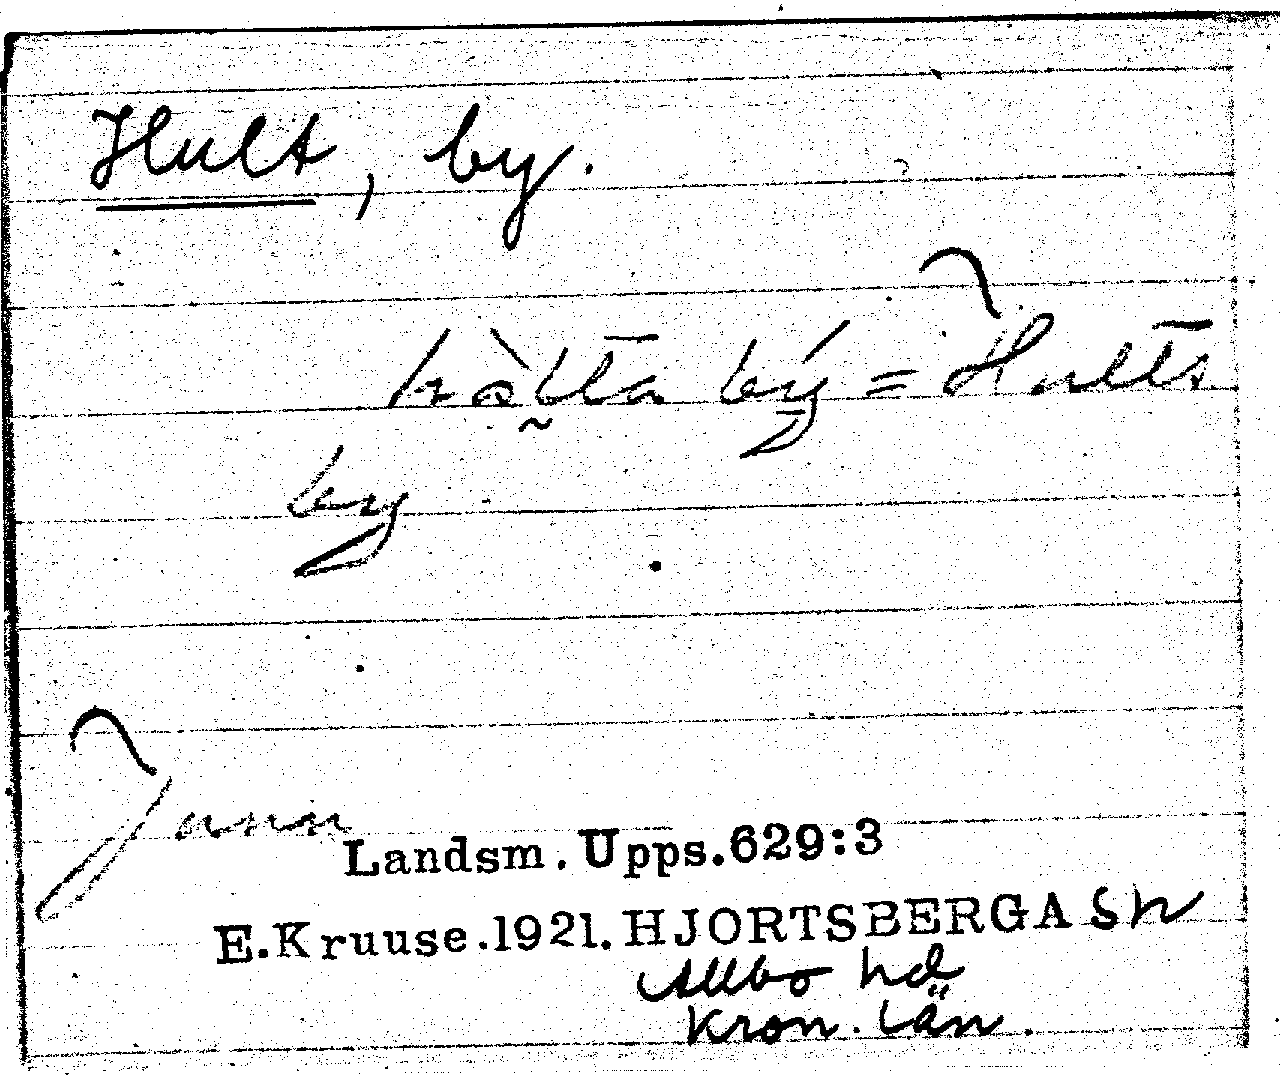 Hult, by.
hò̰lta bý = Hults
by
Junn
Landsm. Upps. 629:3
E. Kruuse. 1921. HJORTSBERGA Sn
Allbo hd
Kron. län.